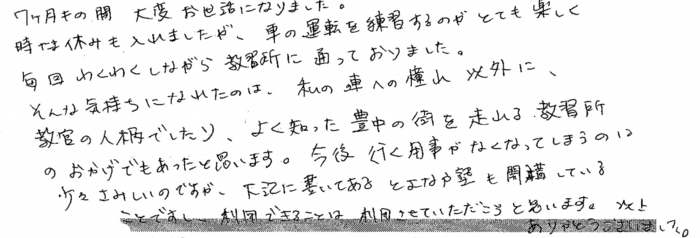 7ヶ月もの間 大変お世話になりました。
時には休みも入れましたが、車の運転を練習するのがとても楽しく
毎回わくわくしながら教習所に通っておりました。
そんな気持ちになれたのは、私の車への憧れ以外に、
教官の人柄でしたり、よく知った豊中の街を走れる教習所
のおかげでもあったと思います。今後行く用事がなくなってしまうのは
少々さみしいのですが、下記に書いてあるとよなか塾も開講している
ことですし、利用できることは利用させていただこうと思います。以上
ありがとうございました。